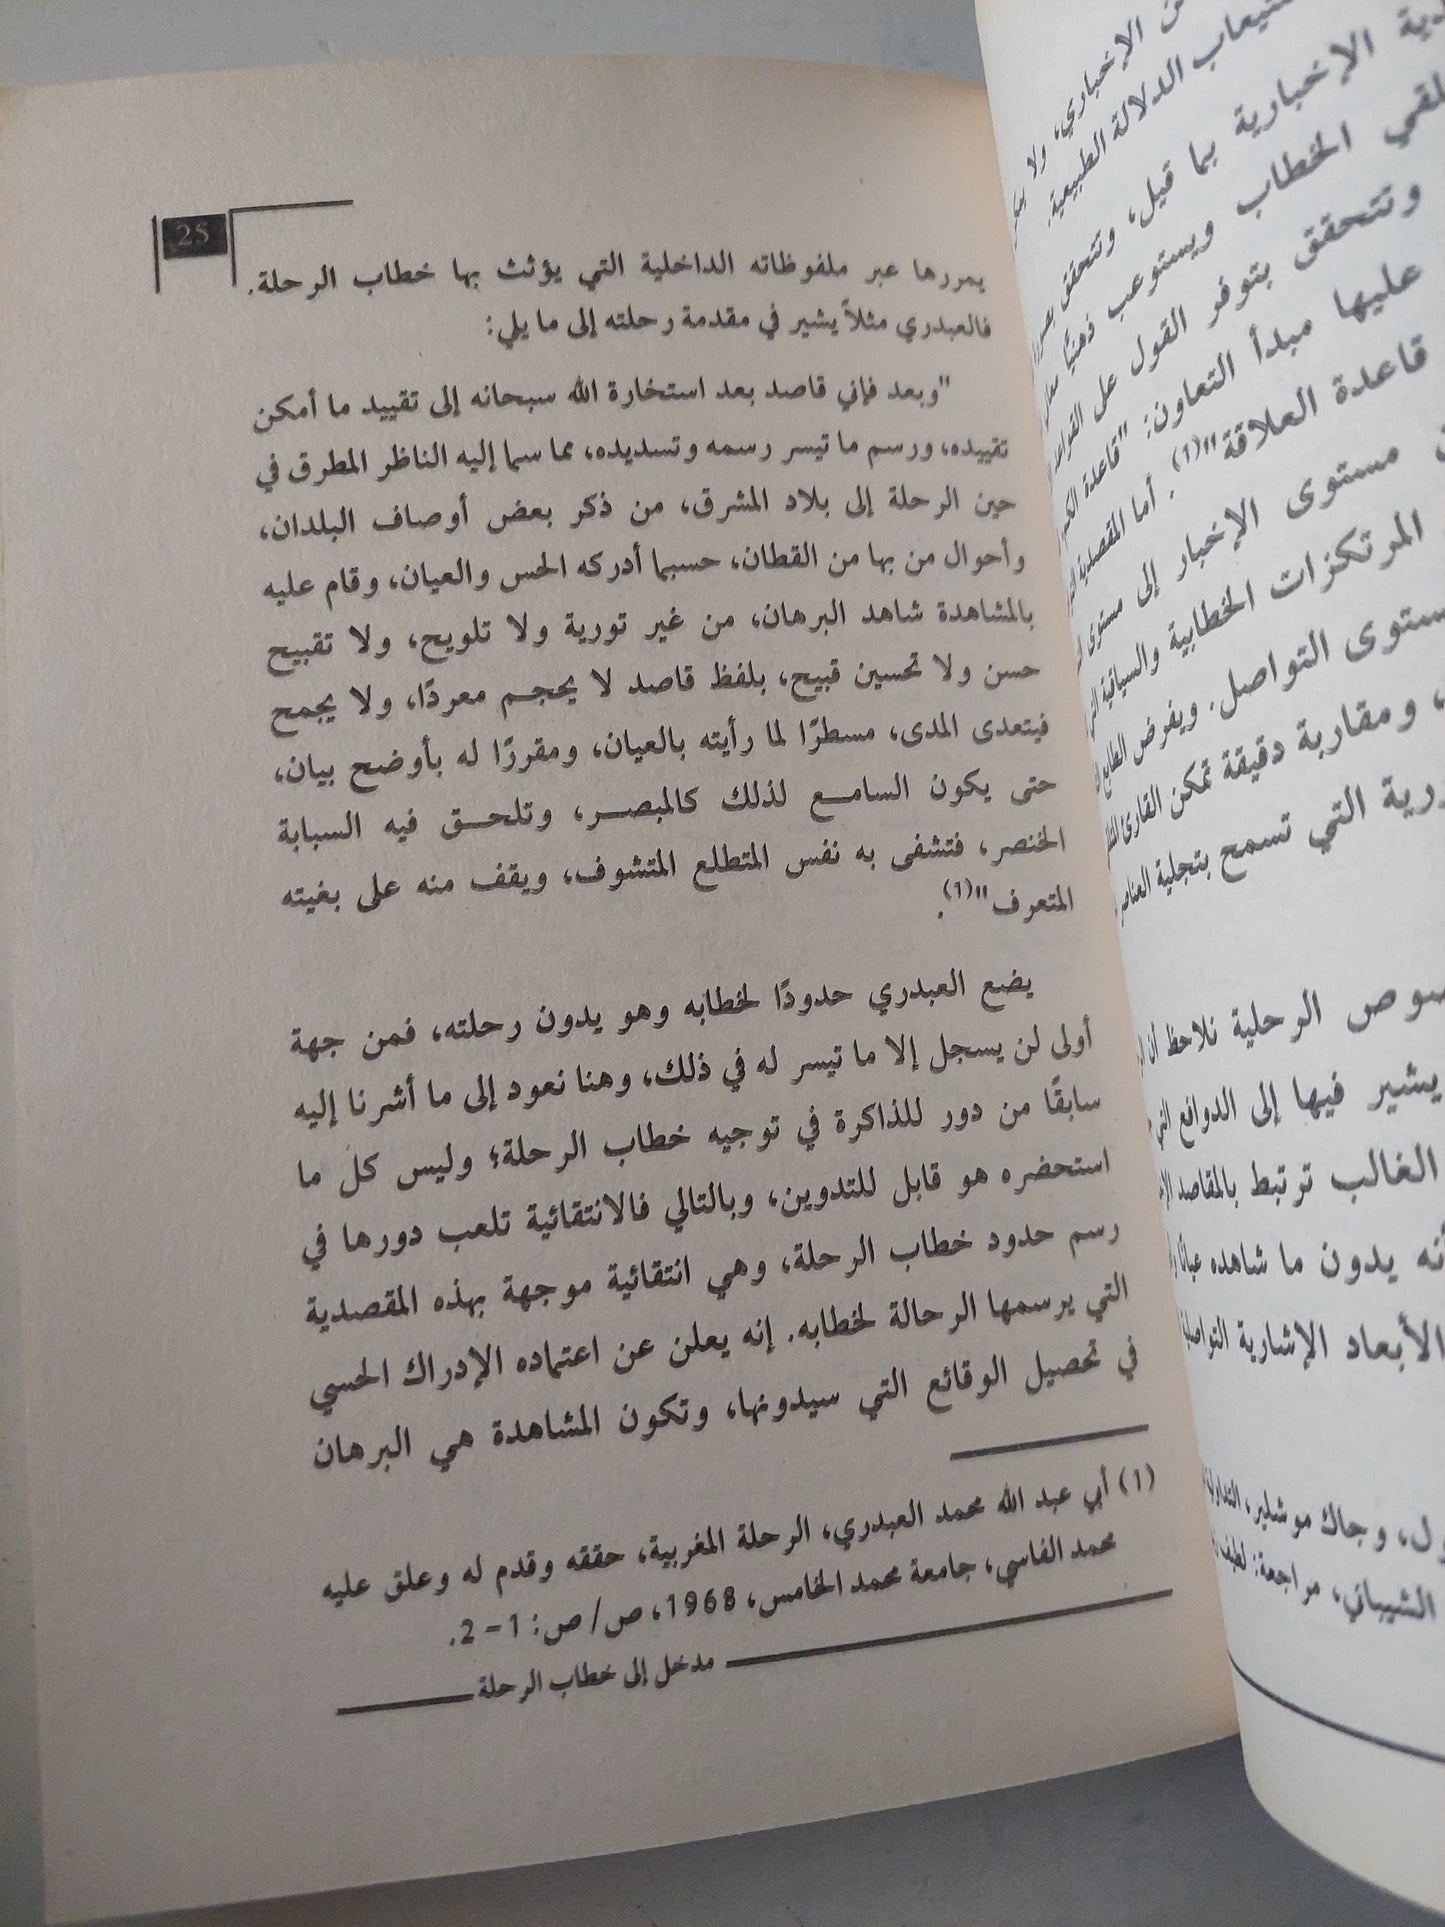 25
يمررها عبر ملفوظاته الداخلية التي يؤثث بها خطاب الرحلة.
فالعبدري مثلاً يشير في مقدمة رحلته إلى ما يلي:
"وبعد فإني قاصد بعد استخارة الله سبحانه إلى تقييد ما أمكن
تقييده، ورسم ما تيسر رسمه وتسديده، مما سما إليه الناظر المطرق في
حين الرحلة إلى بلاد المشرق، من ذكر بعض أوصاف البلدان،
وأحوال من بها من القطان، حسبما أدركه الحس والعيان، وقام عليه
بالمشاهدة شاهد البرهان، من غير تورية ولا تلويح، ولا تقبيح
حسن ولا تحسين قبيح، بلفظ قاصد لا يحجم معردًا، ولا يجمح
فيتعدى المدى، مسطرًا لما رأيته بالعيان، ومقررًا له بأوضح بيان،
حتى يكون السامع لذلك كالمبصر، وتلحق فيه السبابة
الخنصر، فتشفى به نفس المتطلع المتشوف، ويقف منه على بغيته
المتعرف"(1).
يضع العبدري حدودًا لخطابه وهو يدون رحلته، فمن جهة
أولى لن يسجل إلا ما تيسر له في ذلك، وهنا نعود إلى ما أشرنا إليه
سابقًا من دور للذاكرة في توجيه خطاب الرحلة؛ وليس كل ما
استحضره هو قابل للتدوين، وبالتالي فالانتقائية تلعب دورها في
رسم حدود خطاب الرحلة، وهي انتقائية موجهة بهذه المقصدية
التي يرسمها الرحالة لخطابه. إنه يعلن عن اعتماده الإدراك الحسي
في تحصيل الوقائع التي سيدونها، وتكون المشاهدة هي البرهان
(1) أبي عبد الله محمد العبدري، الرحلة المغربية، حققه وقدم له وعلق عليه
محمد الفاسي، جامعة محمد الخامس، 1968، ص/ ص: 1- 2.
مدخل إلى خطاب الرحلة
الإخباري، ولا
الدلالة الطبيعية.
الإخبارية بما قيل، وتتحقق
الخطاب ويستوعب ذهنيًا
وتتحقق بتوفر القول على القواعد
عليها مبدأ التعاون: "قاعدة الكم،
قاعدة العلاقة"(1). أما المقصدية
مستوى الإخبار إلى مستوى
المرتكزات الخطابية والسياقية
مستوى التواصل. ويفرض الطابع
، ومقاربة دقيقة تمكن القارئ
التي تسمح بتجلية العناصر
الرحلية نلاحظ أن
يشير فيها إلى الدوافع
الغالب ترتبط بالمقاصد
يدون ما شاهده عيانًا
الأبعاد الإشارية
، وجاك موشلير،
الشيباني، مراجعة: لطيف